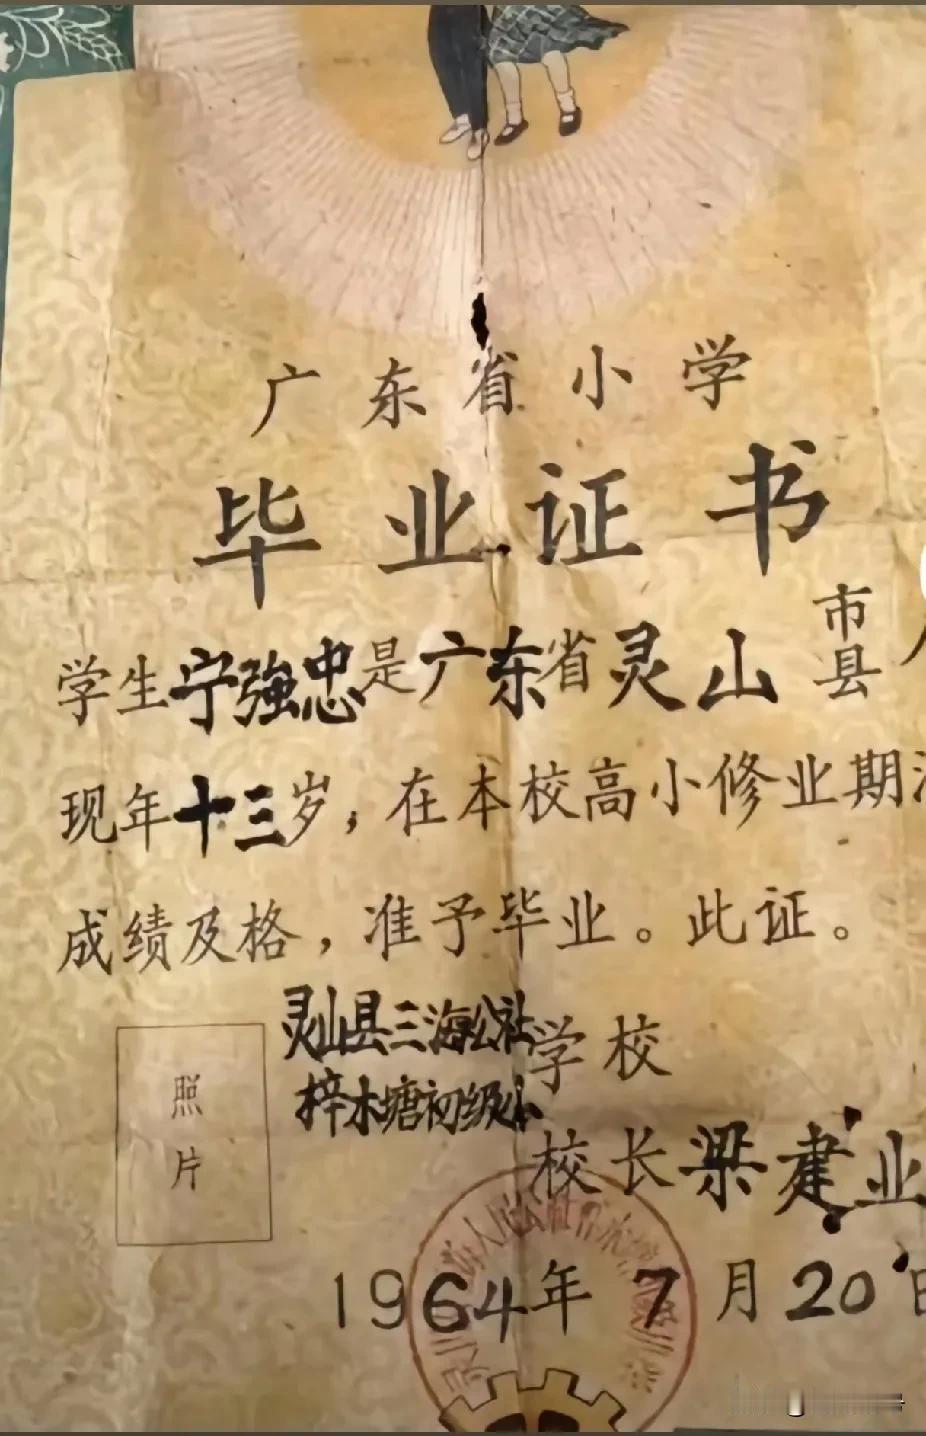 广东省小学
毕业证书
学生宁強忠是广东省灵山市县
现年十三岁，在本校高小修业期
成绩及格，准予毕业。此证。
灵山县三海公社
梓木塘初级小学校
校长梁建业
1964年7月20日
照片